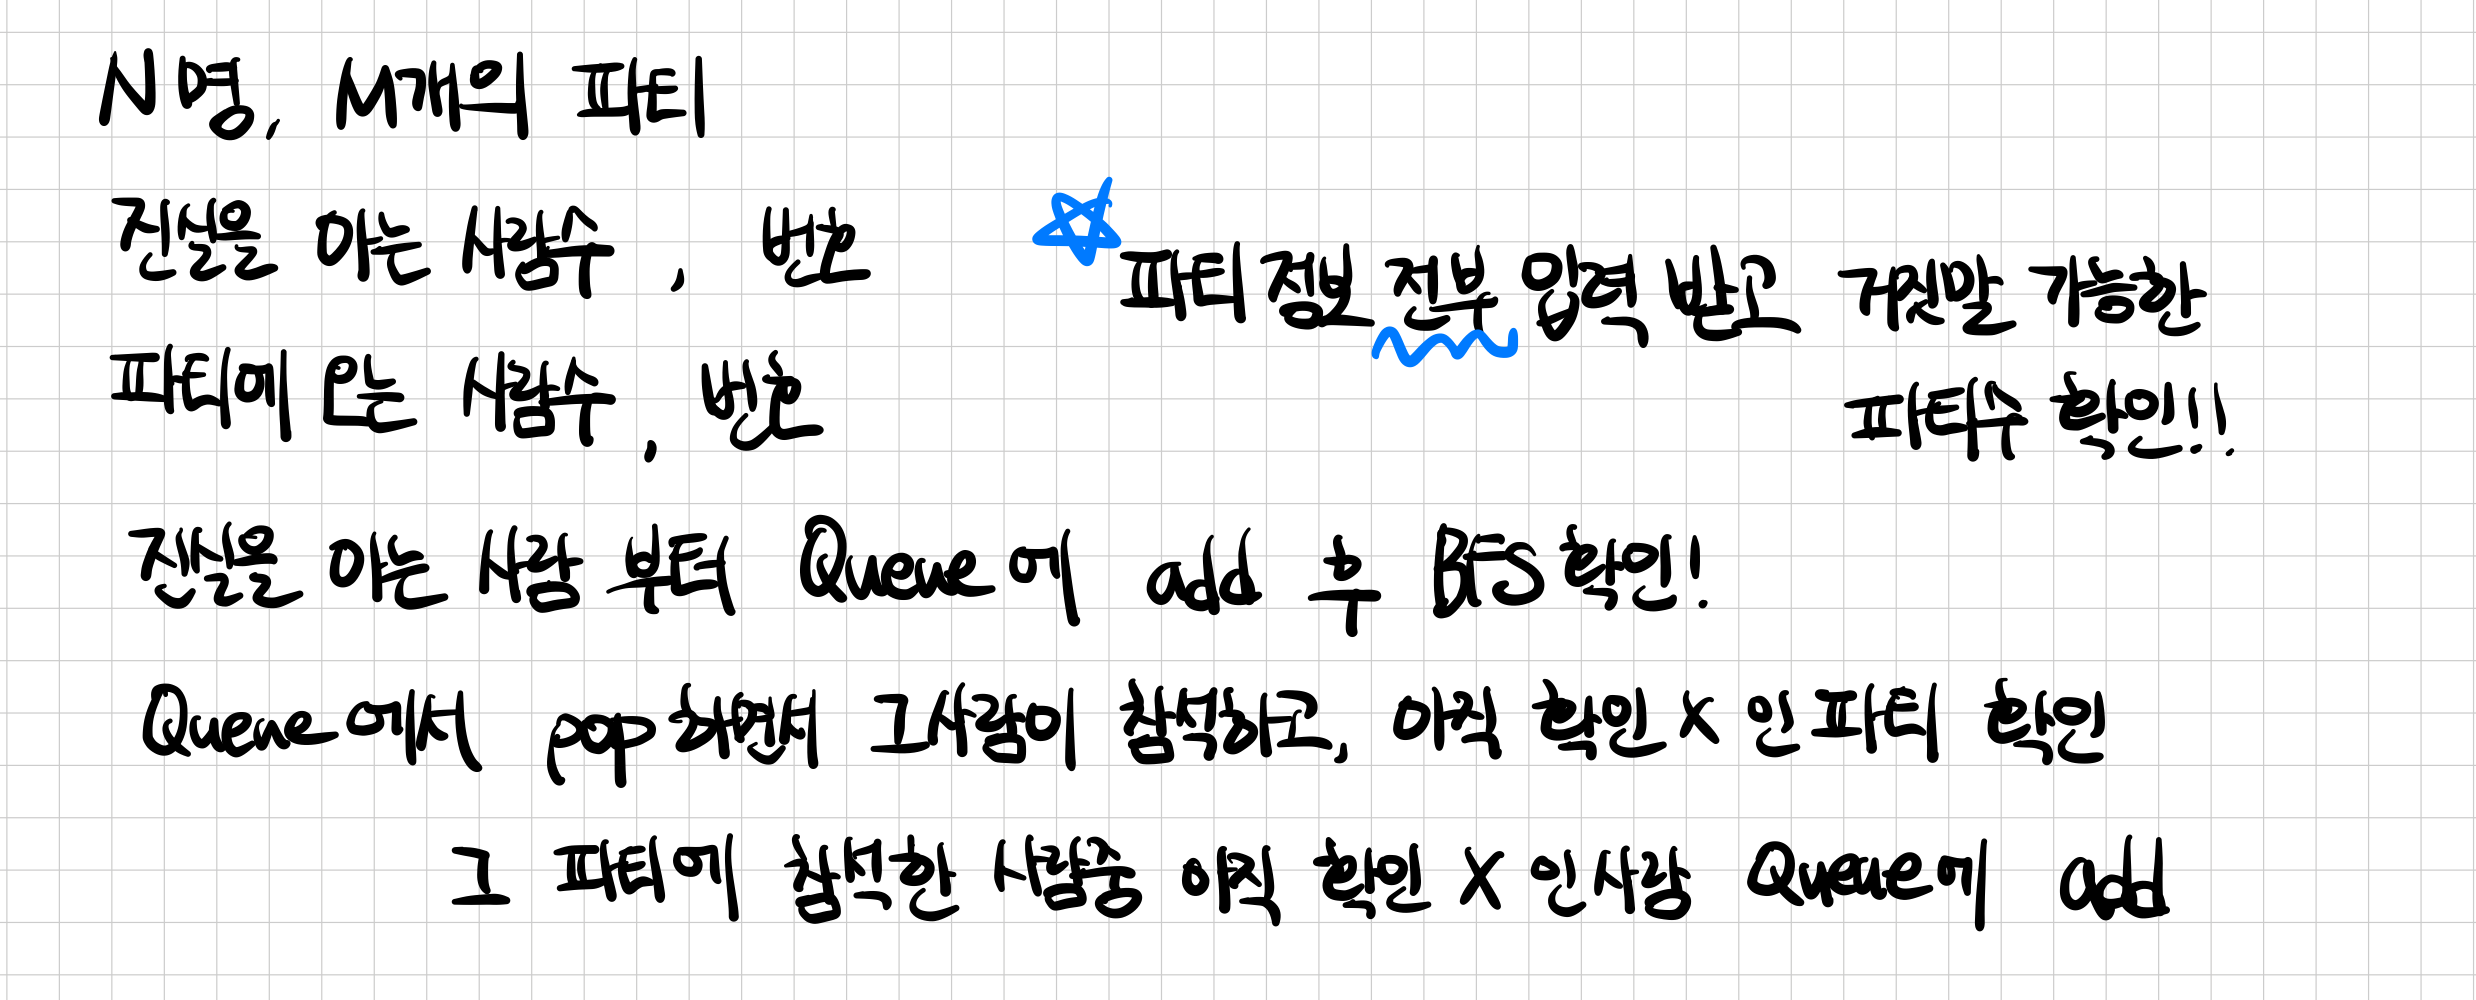 N명, M개의 파티
진실을 아는 사람수, 번호
파티에 오는 사람수, 번호
파티 정보 전부 입력 받고 거짓말 가능한
파티수 확인!!
진실을 아는 사람 부터 Queue에 add 후 BFS 확인!
Queue에서 pop하면서 그사람이 참석하고, 아직 확인 X 인 파티 확인
그 파티에 참석한 사람중 아직 확인 X 인사람 Queue에 add